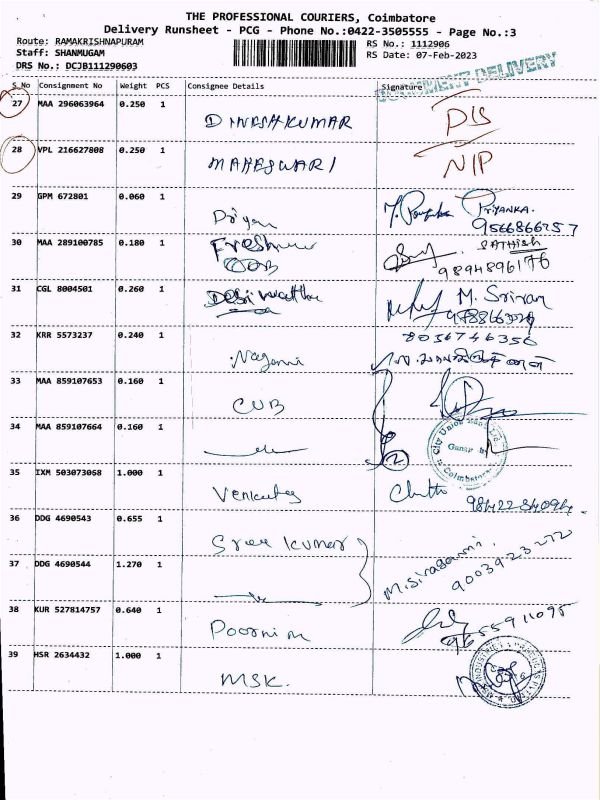 THE PROFESSIONAL COURIERS, Coimbatore
Delivery Runsheet - PCG - Phone No.:0422-3505555 - Page No.:3
Route: RAMAKRISHNAPURAM RS No.: 1112906
Staff: SHANMUGAM RS Date: 07-Feb-2023
DRS No.: DCJB111290603 DELIVERY
S.No Consignment No Weight PCS Consignee Details Signature
27 MAA 296063964 0.250 1 DINESHKUMAR D/S
28 VPL 216627808 0.250 1 MAHESWARI N/P
29 GPM 672801 0.060 1 PRIYANKA.
9566866757
30 MAA 289100785 0.180 1 SATHish
COB 9894896176
31 CGL 8004501 0.260 1 M. Sriram
8056746356
32 KRR 5573237 0.240 1
33 MAA 859107653 0.160 1 CUB
34 MAA 859107664 0.160 1 2
City Union Bank Ltd.
Coimbatore
35 IXM 503073068 1.000 1 Venkates
36 DDG 4690543 0.655 1 Sree kumar
37 DDG 4690544 1.270 1 9003923272
38 KUR 527814757 0.640 1 9655911095
39 HSR 2634432 1.000 1 MSK.